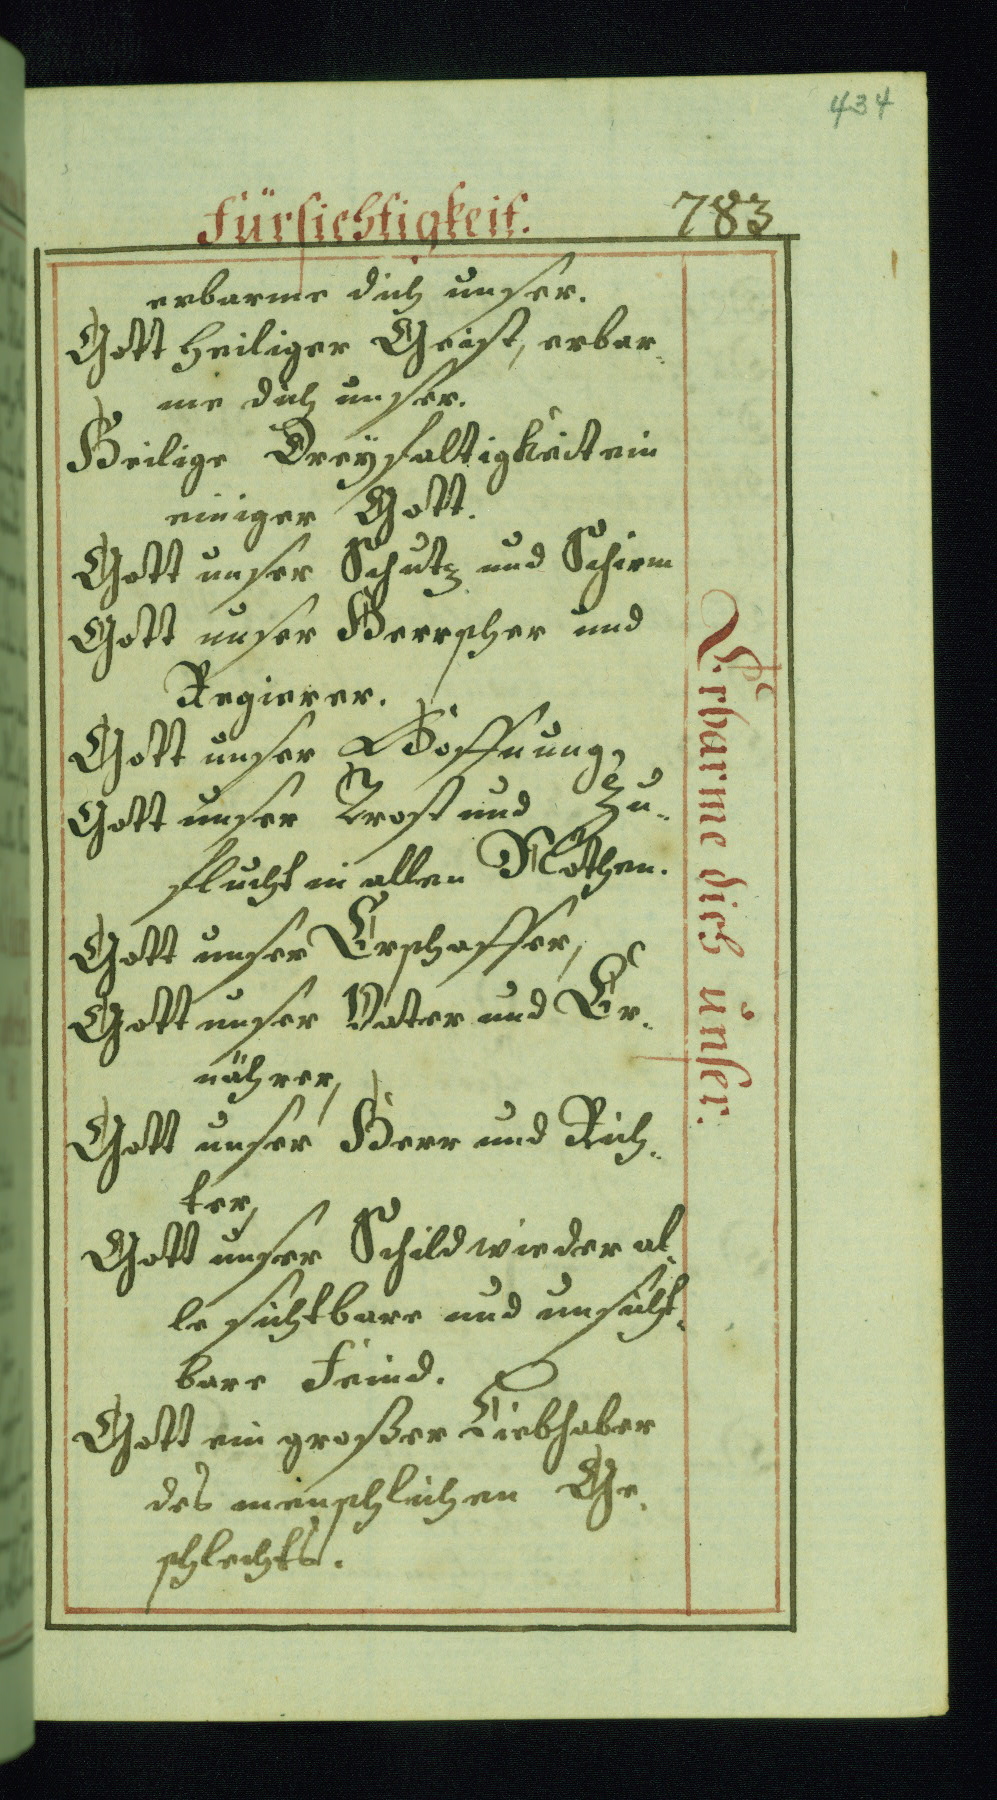 434
Fürsichtigkeit. 783
erbarme dich unser.
Gott heiliger Geist, erbar-
me dich unser.
Heilige Dreyfaltigkeit ein
einiger Gott.
Gott unser Schutz und Schirm
Gott unser Herrscher und
Regierer.
Gott unser Hoffnung,
Gott unser Trost und Zu-
flucht in allen Nöthen.
Gott unser Erschaffer,
Gott unser Vater und Er-
nährer,
Gott unser Herr und Rich-
ter,
Gott unser Schild wieder al-
le sichtbare und unsicht-
bare Feind.
Gott ein großer Liebhaber
des menschlichen Ge-
schlechts.
Erbarme dich unser.